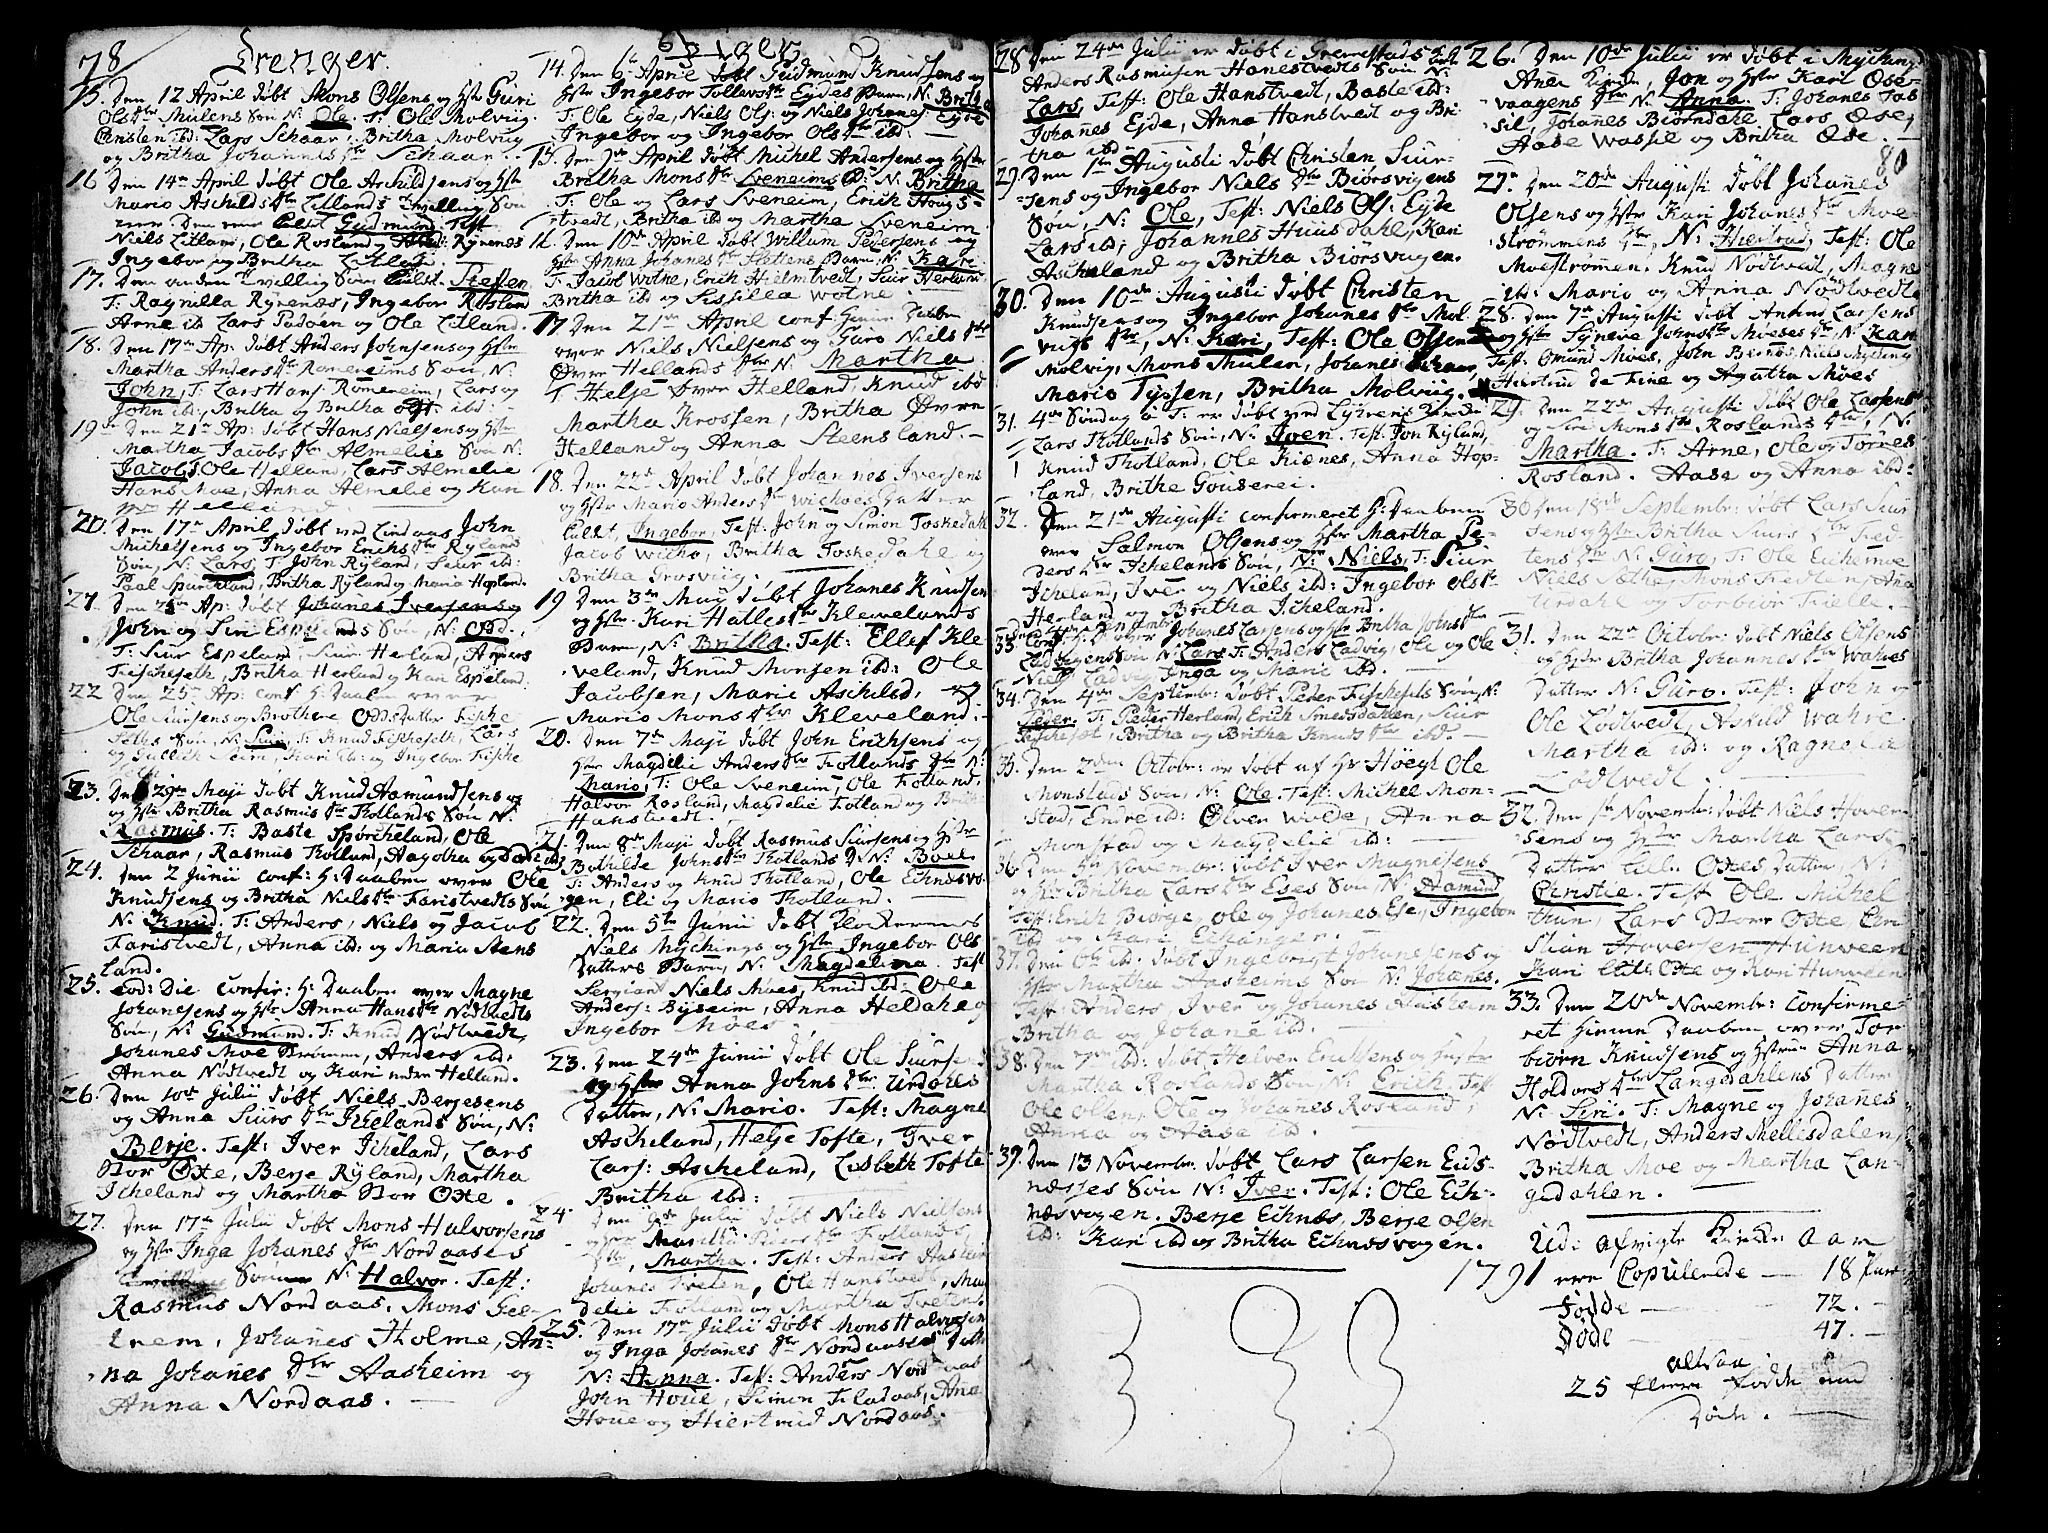 78 Drenger.
15. Den 12 April døbt Mons Olsens og Hstr Guri
Ols dtr Mulens Søn N: Ole. T: Ole Molviig.
Christen ibd: Lars Schaar, Britha Molviig
og Britha Johannes dtr Schaar.
16 Den 14de April døbt Ole Aschildsens og Hstr
Mario Aschilds dtr Litlands Tvilling Søn
Gudmund Test
Niels Litland, Ole Rosland og Rynenes
Ingebor og Britha Litland.
17. Den anden Tvilling Søn Steffen
T: Ragnilla Rynenæs, Ingebor Rosland
Arne ib Lars Padøen og Ole Litland.
18. Den 17de Ap: døbt Anders Johnsens og Hstr
Martha Anders dtr Romereims Søn, N:
John, T: Lars Hans: Romereim, Lars og
John ibd: Britha og Britha Ols: ibd:
19. Den 21de Ap: døbt Hans Nielsens og Hstr
Martha Jacobs dtr Almelies Søn N:
Jacob, Ole Helland, Lars Almelie
Hans Moe, Anna Almelie og Kari
Helland.
20. Den 17de April døbt ved Lindaas John
Michelsens og Ingebor Erichs dtr Rylands
Søn, N: Lars T: John Ryland, Siur id:
Paal Spurkland, Britha Ryland og Maria Hopland.
21. Den Ap: døbt Johanes Iversens og
John og Siri Espelands Søn, N: Odd.
T: Siur Espeland, Siur Herland, Anders
Fischeseth, Britha Herland og Kari Espeland
22 Den 25de Ap: conf H: Daaben over
Ole Siursens og Brothere Odds datter Fiske
seths Søn, N: Siur, T: Knud Fischeseth, Lars
og Gullich Seim, Kari ibd: og Ingebor Fiske
23. Den 29de Maji døbt Knud Aamundsens og
og Hstr Britha Rasmus dtr Totlands Søn N:
Rasmus. T: Baste Spørcheland, Ole
Schaar, Rasmus Totland, Aagotha og
24. Den 2 Junii conf: H: Daaben over Ole
Knudsens og Britha Niels dtr Faristvedts Søn
N: Knud. T: Anders, Niels og Jacob
Faristvedt, Anna ibd: og Maria Stens
land.
25. Eod: Die confir: H: Daaben over Magne
Johanesens og Hstr Anna Hans dtr Nødtvedts
Søn, N: Gudmund. T: Knud Nødtvedt,
Johanes Moe Strømen, Anders ibd:
Anna Nødtvedt og Kari nedre Helland.
26. Den 10de Julii døbt Niels Berjesens
og Anna Siurs dtr Ichelands Søn, N:
Berje. Test: Iver Icheland, Lars
Stor Oxe, Berje Ryland, Martha
Icheland og Martha Stor Oxe.
27. Den 17de Julii døbt Mons Halvorsens
og Hstr Inga Johanes dtr Nordaases
Søn N: Halvor. Test:
Rasmus Nordaas, Mons Gee-
trem, Johanes Holme, An-
na Johanes dtr Aasheim og
Anna Nordaas.
Piger.
14. Den 6te April døbt Gudmund Knudsens og
Hstr Ingebor Tollevs dtr Eydes Barn, N: Britha
T: Ole Eyde, Niels Ols: og Niels Johanes: Eyde
Ingebor og Ingebor Ols dtr ibd:
15. Den April døbt Michel Andersens og Hstr
Britha Mons dtr Sveneims D: N: Britha
T: Ole og Lars Sveneim, Erich Houg-
tvedt, Britha ibd og Martha Sveneim.
16. Den 10de April døbt Willum Pedersens og
Hstr Anna Johanes dtr Slettens Barn, N: Kari
T: Jacob Wotne, Erich Hielmtvedt, Siur Herland
Britha ib og Sissilla Wotne
17 Den 21de April conf hiem Daaben
over Niels Nielsens og Guro Niels dtr
Øvre Hellands dtr N: Martha
T: Helje Øvre Helland, Knud ibd
Martha Krossen, Britha Øvre
Helland og Anna Steensland.
18. Den 22de April døbt Johannes Iversens
og Hstr Mario Anders dtr Wichoes Datter
kaldt, Ingebor. Test: John og Simon Foskedahl
Jacob Wicho, Britha Foskedahl og
Britha Grosviig.
19 Den 3de Maji døbt Johanes Knudsen
og Hstr Kari Halles dtr Klevelands
Barn, N: Britha. Test: Ellef Kle-
veland, Knud Monsen ibd: Ole
Jacobsen, Marie Aschilsd. og
Mario Mons dtr Kleveland.
20. Den 7de Maji døbt John Erichsens og
Hstr Magdelie Anders dtr Totlands dtr N:
Mario, T: Ole Sveneim, Ole Totland,
Halvor Rosland, Magdelie Totland og Britha
Hanstvedt.
21. Den 8de Maji døbt Rasmus Siursens og Hstr
Bothilde Johns dtr Totlands D: N: Boel.
T: Anders og Knud Totland, Ole Echnæsvo-
gen, Eli og Mario Totland.
22. Den 5te Junii døbt Klockerens
Niels Myckings og Hstr Ingebor Ols
Datters Barn, N: Magdelena. Test
Sergiant Niels Moes, Knud ibd: Ole
Anders: Byseim, Anna Heldahl og
Ingebor Moes.
23. Den 24de Junii døbt Ole Siursens
og Hstr Anna Johns dtr Urdahls
Datter, N: Mario. Test: Magne
Ascheland, Helje Tofte, Iver
Lars: Ascheland, Lisbeth Tofte
Britha ibd:
24. Den Julii døbt Niels Nielsens
Totlands
Martha. Test: Anders
Johanes Tveten, Ole Hanstvedt, Mag
delie Totland og Martha Tveten.
25. Den 17de Julii døbt Mons Halvorsen
og Inga Johanes dtr Nordaases Datter
N: Anna. Test: Anders Nordaas
John Houe, Simon Titadaas, Ana
Houe og Hiertrud Nordaas.
28 Den 24de Julii er døbt i Grimstads
Anders Rasmusen Hanestvedts Søn N:
Lars Test: Ole Hanstvedt, Baste ibd:
Johanes Eyde, Anna Hanstvedt og Bri-
tha ibd
29. Den 1ste Augusti døbt Christen Siur-
sens og Ingebor Niels dtr Biørsvigens
Søn, N: Ole, Test: Niels Ols: Eyde
Lars id: Johannes Huusdahl, Kari
Ascheland og Britha Biørsvigen.
30. Den 10de Augusti døbt Christen
Knudsens og Ingebor Johanes dtr Mol-
vigs dtr, N: Kari, Test: Ole Olsen
Molvig, Mons Mulen, Johanes Schaar,
Mario Tyssen, Britha Molviig.
31. 4de Søndag er døbt ved Lygrens Kirke
Lars Totlands Søn, N: Iven. Test: Jon Ryland,
Knud Totland, Ole Kienes, Anna Hop-
land, Brithe Gouserei.
32. Den 21de Augusti confirmeret H: Daaben
over Salmon Olsens og Hstr Martha Pe-
ders dtr Ichelands Søn, N: Niels. T: Siur
Icheland, Iver og Niels ibd: Ingebor Ols dtr
Herland og Britha Icheland.
33. Johanes Larsens og Hstr Britha Johns dtr
Ladvigens Søn N: Lars T: Anders Ladvig, Ole og Ole
Niels Ladvig Inga og Mari ibd.
34. Den 4de Septembr: døbt Peder Fischeseths Søn, N:
Peder. T: Peder Herland, Erich Smedsdahlen, Siur
Fischeset, Britha og Britha Knuds dtr ibd.
35. Den 2den Octobr: er døbt af Hr Høegh Ole
Monstads Søn, N: Ole. Test: Michel Mon-
stad, Endre id: Ølver Vulde, Anna
Monstad og Magdelie ibd:
36. Den Novembr: døbt Iver Magnesens
og Hstr Britha Lars dtr Eses Søn, N: Aamund
Test: Erich Biørge, Ole og Johanes Ese, Ingebor
ibd og Kari Eichanger.
37. Den 6te ibd: døbt Ingebrigt Johanesens og
Hstr Martha Aasheims Søn N: Johanes.
Test: Anders, Iver og Johanes Aasheim
Britha og Johane ibd.
38. Den ibd: døbt Halvor Erichsens og Hstr
Martha Roslands Søn N: Erich. Test
Ole Olsen, Ole og Johanes Rosland,
Anna og Aase ibd.
39. Den 13 Novembr: døbt Lars Larsen Eids-
næsses Søn N: Iver. Test: Ole Ech-
næsvogen. Berje Echnæs, Berje Olsen
ibd: Kari ibd og Britha Echnæsvogen.
26. Den 10de Julii er døbt i Myckings
Anex Kirke, Jon og Hstr Kari Ose-
vaagens dtr N: Anna. T: Johanes Fas
sil, Johanes Biørndahl, Lars Ose,
Aase Wassil og Britha Ose.
80
27. Den 20de Augusti døbt Johanes
Olsens og Hstr Kari Johanes dtr Moe-
strømmens dtr, N: Hiertrud, Test: Ole
Moestrømen. Knud Nødtvedt, Magne
ibd: Mario og Anna Nødtvedt
28. Den 7de Augusti døbt Amund Larsens
og Hstr Synneve Johns dtr Moeses dtr, N: Kari
Test: Omund Moes, John Niels Mycking
Hiertrud de Fine og Agatha Moes
29. Den 22de Augusti døbt Ole Larsens
og Siri Mons dtr Roslands dtr, N:
Martha. T: Arne, Ole og Tornes
Rosland. Aase og Anna ibd:
30 Den 18de Septembr: døbt Lars Siur
sens og Hstr Britha Siurs dtr Tved
tens dtr N: Guro, T: Ole Eicheimoe
Niels Sæthe, Mons Tvedten, Ana
Urdahl og Torbiør Fielle.
31. Den 22de Octobr: døbt Niels Olsens
og Hstr Britha Johannes dtr Wahres
Datter N: Guro. Test: John og
Ole Lødtvedt, Askild Wahre
Martha ibd: og Ragnela
Lødtvedt.
32. Den 1ste Novembr: døbt Niels Hover-
sens og Hstr Martha Lars-
Datter Lill Oxes Datter, N:
Christie. Test Ole Michel
thun, Lars Stor Oxe Chri
stian Hoversen Hunveen
Kari Lille Oxe og Kari Hunveen
33. Den 20de Novembr: confirme-
ret Hiemme Daaben over Tor
biørn Knudsens og Hstrue Anna
Holdors dtr Langedahlens Datter
N: Siri. T: Magne og Johanes
Nødtvedt, Anders Mellesdalen,
Britha Moe og Martha Lan-
gedahlen.
Udi afvigte Kirke Aar
1791 ere Copulerede — 18 Par
Fødde — 72.
Døde — 47.
altsaa
25 flere Fødde end
Døde.